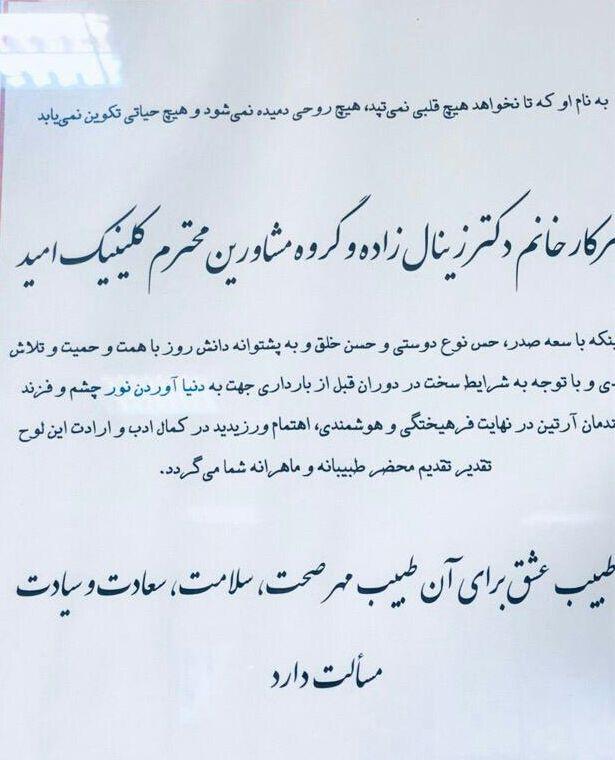 به نام او که تا نخواهد هیچ قلبی نمی‌تپد، هیچ روحی دمیده نمی‌شود و هیچ حیاتی تکوین نمی‌یابد
سرکار خانم دکتر زینال زاده و گروه مشاورین محترم کلینیک امید
ینکه با سعه صدر، حس نوع دوستی و حسن خلق و به پشتوانه دانش روز با همت و حمیت و تلاش
دی و با توجه به شرایط سخت در دوران قبل از بارداری جهت به دنیا آوردن نور چشم و فرزند
تدمان آرتین در نهایت فرهیختگی و هوشمندی، اهتمام ورزیدید در کمال ادب و ارادت این لوح
تقدیر تقدیم محضر طبیبانه و ماهرانه شما می‌گردد.
طبیب عشق برای آن طبیب مهر صحت، سلامت، سعادت و سیادت
مسألت دارد